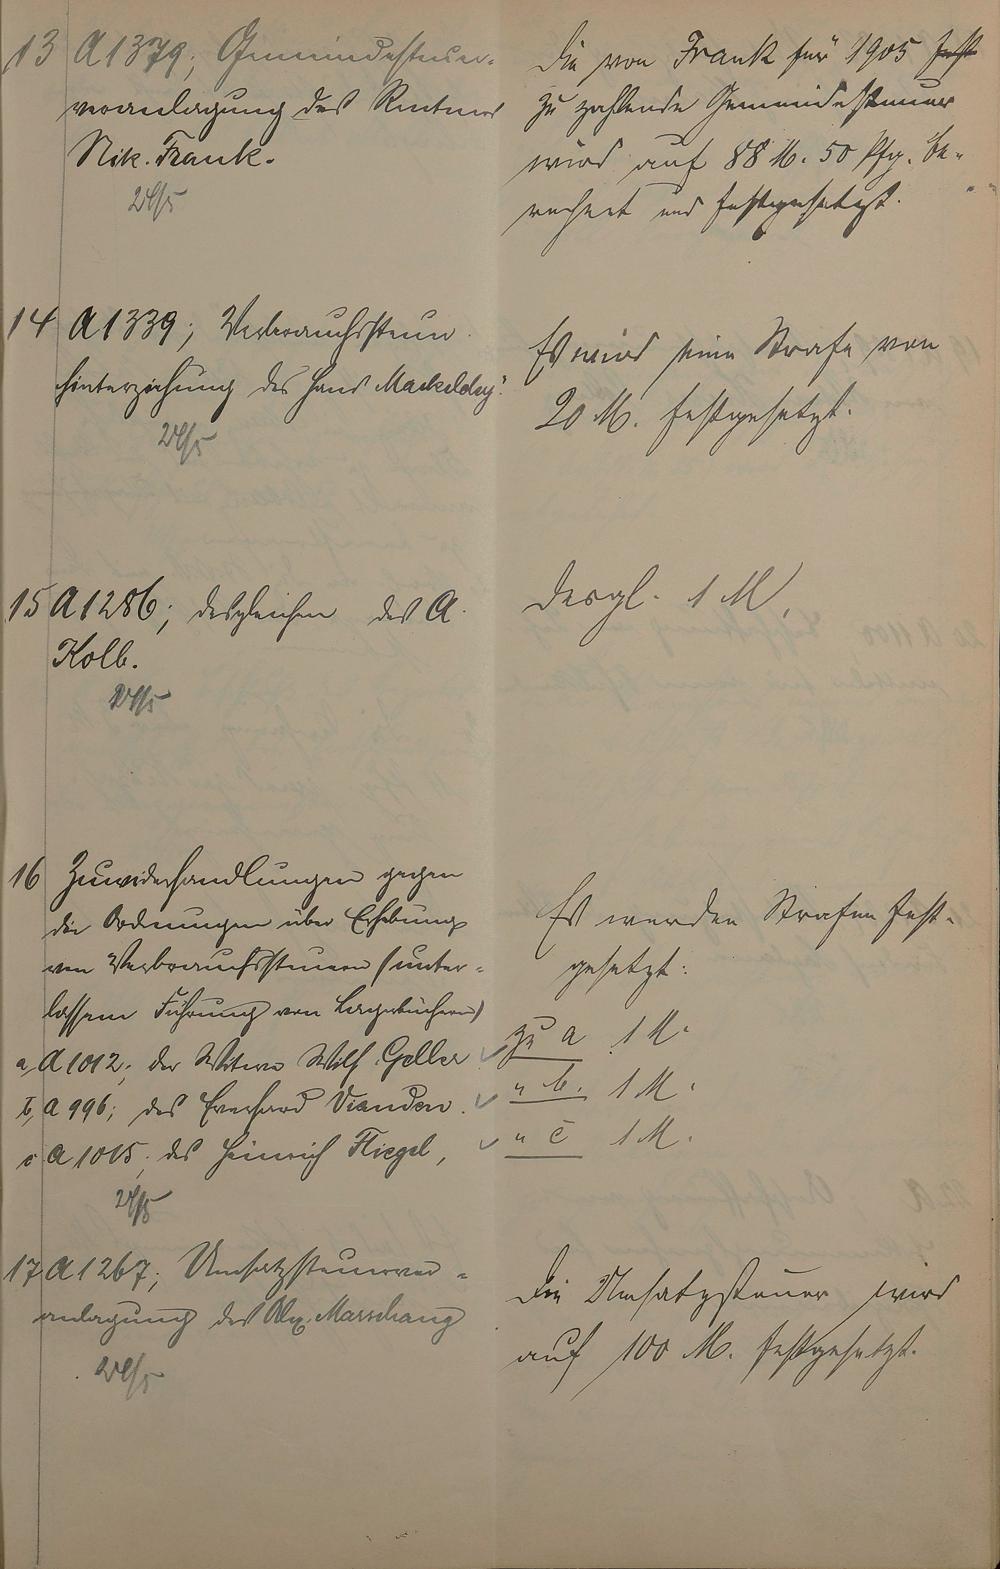 13 A 1379; Gemeindesteuer-
veranlagung des Rentners
Nik. Frank.
Die von Frank für 1905 fest
zu zahlende Gemeindesteuer
wird auf 88 M. 50 Pfg. be-
rechnet und festgesetzt.
14 A 1339; Verbrauchssteuer
hinterziehung des Hans Mackeldey.
Es wird eine Strafe von
20 M. festgesetzt.
15 A 1286; desgleichen des A.
Kolb.
desgl. 1 M,
16 Zuwiderhandlungen gegen
die Ordnungen über Erhebung
von Verbrauchssteuern (unter-
lassene Führung von Lagerbüchern)
a, A 1012; der Witwe Wilh. Geller
b, A 996; des Everhard Vianden.
c A 1015; des Heinrich Fliegel,
Es werden Strafen fest-
gesetzt:
zu a 1 M.
" b. 1 M.
" c 1 M.
17 A 1267; Umsatzsteuerver-
anlagung des Alex. Marschang
Die Umsatzsteuer wird
auf 100 M. festgesetzt.